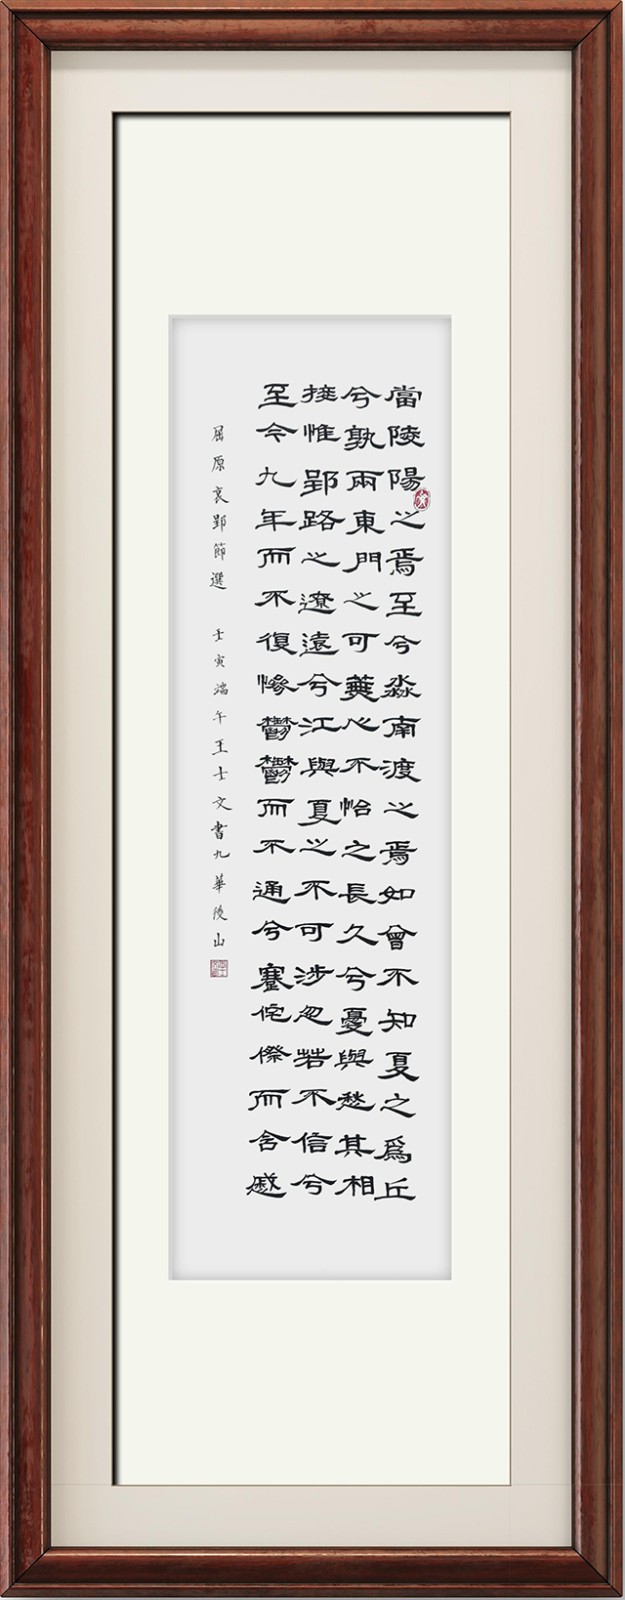 當陵陽之焉至兮淼南渡之焉如曾不知夏之爲丘
兮孰兩東門之可蕪心不怡之長久兮憂與愁其相
接惟郢路之遼遠兮江與夏之不可涉忽若不信兮
至今九年而不復慘鬱鬱而不通兮蹇侘傺而含慼
屈原哀郢節選 壬寅端午王士文書九華後山